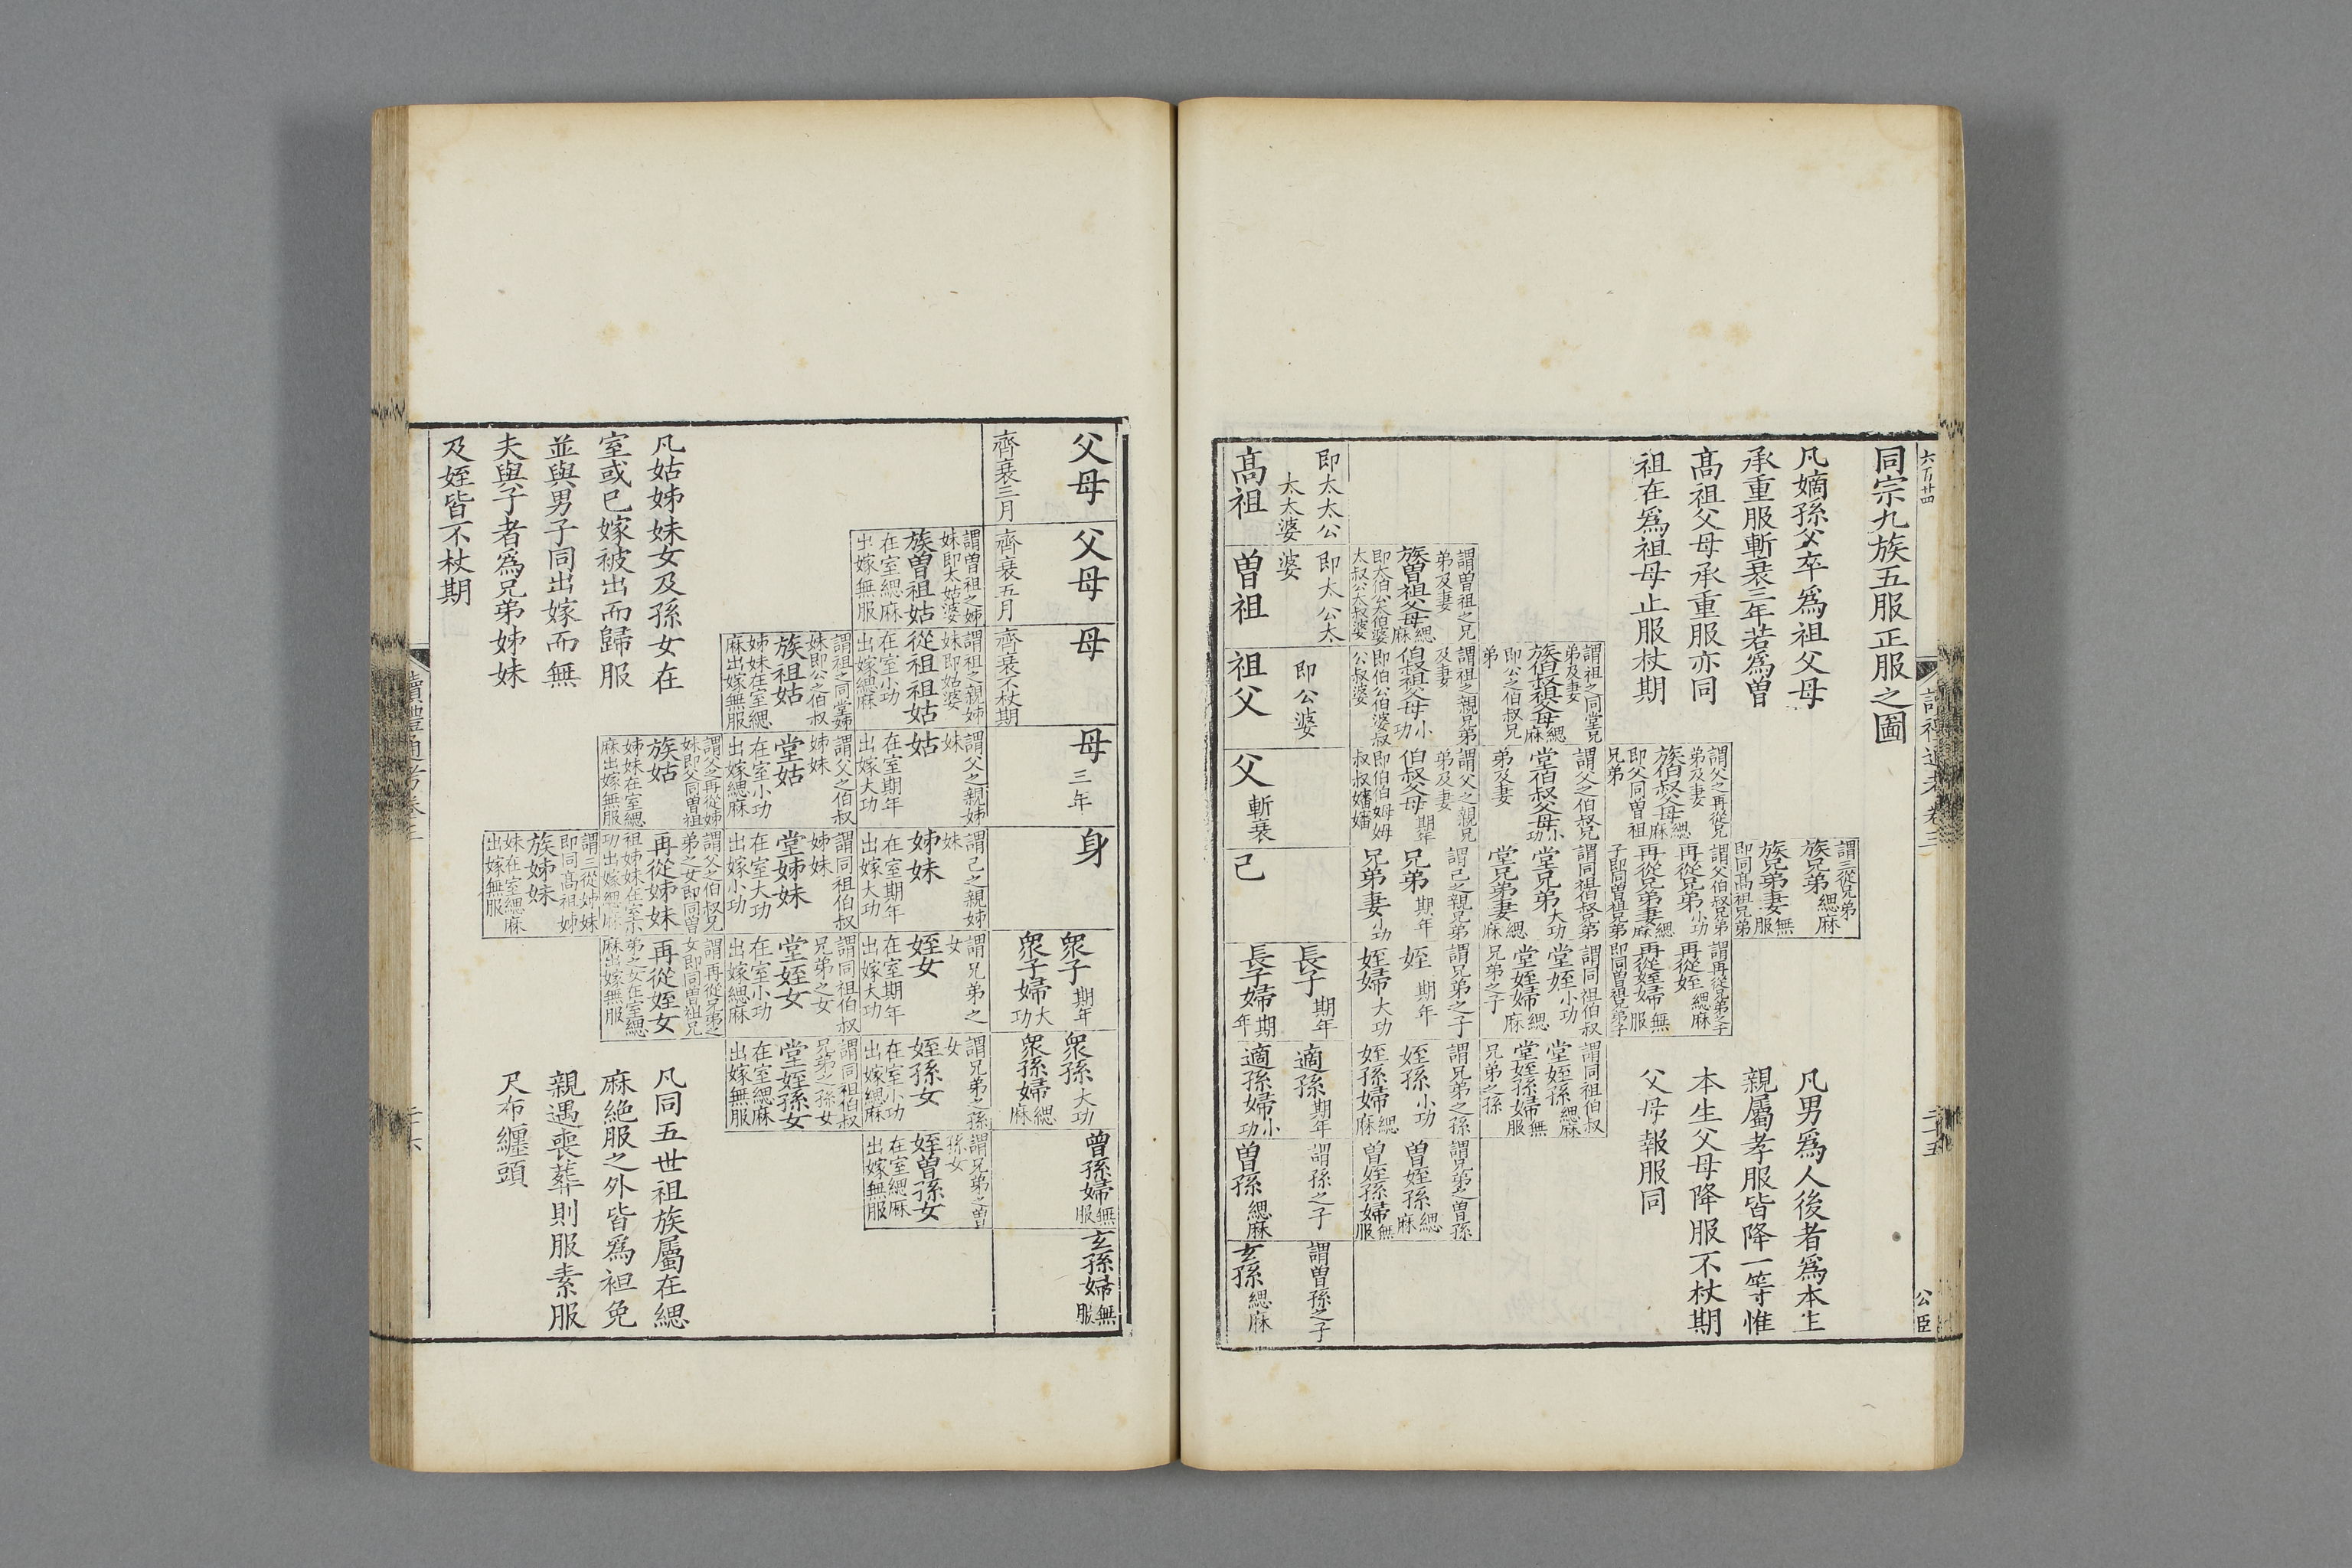 六百廿四
讀禮通考卷三
二十五
公臣
同宗九族五服正服之圖
凡嫡孫父卒爲祖父母
承重服斬衰三年若爲曾
高祖父母承重服亦同
祖在爲祖母止服杖期
凡男爲人後者爲本生
親屬孝服皆降一等惟
本生父母降服不杖期
父母報服同
謂三從兄弟
族兄弟緦麻
族兄弟妻無服
即同高祖兄弟
謂父之再從兄
弟及妻
族伯叔父母緦麻
即父同曾祖
兄弟
謂父伯叔兄弟
再從兄弟小功
再從兄弟妻緦麻
子即同曾祖兄弟
謂再從兄弟之子
再從姪緦麻
再從姪婦無服
即同曾祖兄弟子
謂祖之同堂兄
弟及妻
族伯叔祖父母緦麻
即公之伯叔兄
弟
謂父之伯叔兄
堂伯叔父母小功
弟及妻
謂同祖伯叔兄弟
堂兄弟大功
堂兄弟妻緦麻
謂同祖伯叔
堂姪小功
堂姪婦緦麻
兄弟之子
謂同祖伯叔
堂姪孫緦麻
堂姪孫婦無服
兄弟之孫
謂曾祖之兄
弟及妻
族曾祖父母緦麻
即太伯公太伯婆
太叔公太叔婆
謂祖之親兄弟
及妻
伯叔祖父母小功
即伯公伯婆叔
公叔婆
謂父之親兄
弟及妻
伯叔父母期年
即伯伯姆姆
叔叔嬸嬸
謂己之親兄弟
兄弟期年
兄弟妻小功
謂兄弟之子
姪期年
姪婦大功
謂兄弟之孫
姪孫小功
姪孫婦緦麻
謂兄弟之曾孫
曾姪孫緦麻
曾姪孫婦無服
即太太公
太太婆
高祖
即太公太
婆
曾祖
即公婆
祖父
父斬衰
己
長子期年
長子婦期年
適孫期年
適孫婦小功
謂孫之子
曾孫緦麻
謂曾孫之子
玄孫緦麻
父母
齊衰三月
父母
齊衰五月
母
齊衰不杖期
母三年
身
衆子期年
衆子婦大功
衆孫大功
衆孫婦緦麻
曾孫婦無服
玄孫婦無服
謂曾祖之姊
妹即太姑婆
族曾祖姑
在室緦麻
出嫁無服
謂祖之親姊
妹即姑婆
從祖祖姑
在室小功
出嫁緦麻
謂父之親姊
妹
姑
在室期年
出嫁大功
謂己之親姊
妹
姊妹
在室期年
出嫁大功
謂兄弟之
女
姪女
在室期年
出嫁大功
謂兄弟之孫
女
姪孫女
在室小功
出嫁緦麻
謂兄弟之曾
孫女
姪曾孫女
在室緦麻
出嫁無服
謂祖之同堂姊
妹即公之伯叔
族祖姑
姊妹在室緦
麻出嫁無服
謂父之伯叔
姊妹
堂姑
在室小功
出嫁緦麻
謂同祖伯叔
姊妹
堂姊妹
在室大功
出嫁小功
謂同祖伯叔
兄弟之女
堂姪女
在室小功
出嫁緦麻
謂同祖伯叔
兄弟之孫女
堂姪孫女
在室緦麻
出嫁無服
謂父之再從姊
妹即父同曾祖
族姑
姊妹在室緦
麻出嫁無服
謂父之伯叔兄
弟之女即同曾
再從姊妹
祖姊妹在室小
功出嫁緦麻
謂再從兄弟之
女即同曾祖兄
再從姪女
弟之女在室緦
麻出嫁無服
謂三從姊妹
即同高祖姊
族姊妹
妹在室緦麻
出嫁無服
凡姑姊妹女及孫女在
室或已嫁被出而歸服
並與男子同出嫁而無
夫與子者爲兄弟姊妹
及姪皆不杖期
凡同五世祖族屬在緦
麻絶服之外皆爲袒免
親遇喪葬則服素服
尺布纏頭
讀禮通考卷三
二十六